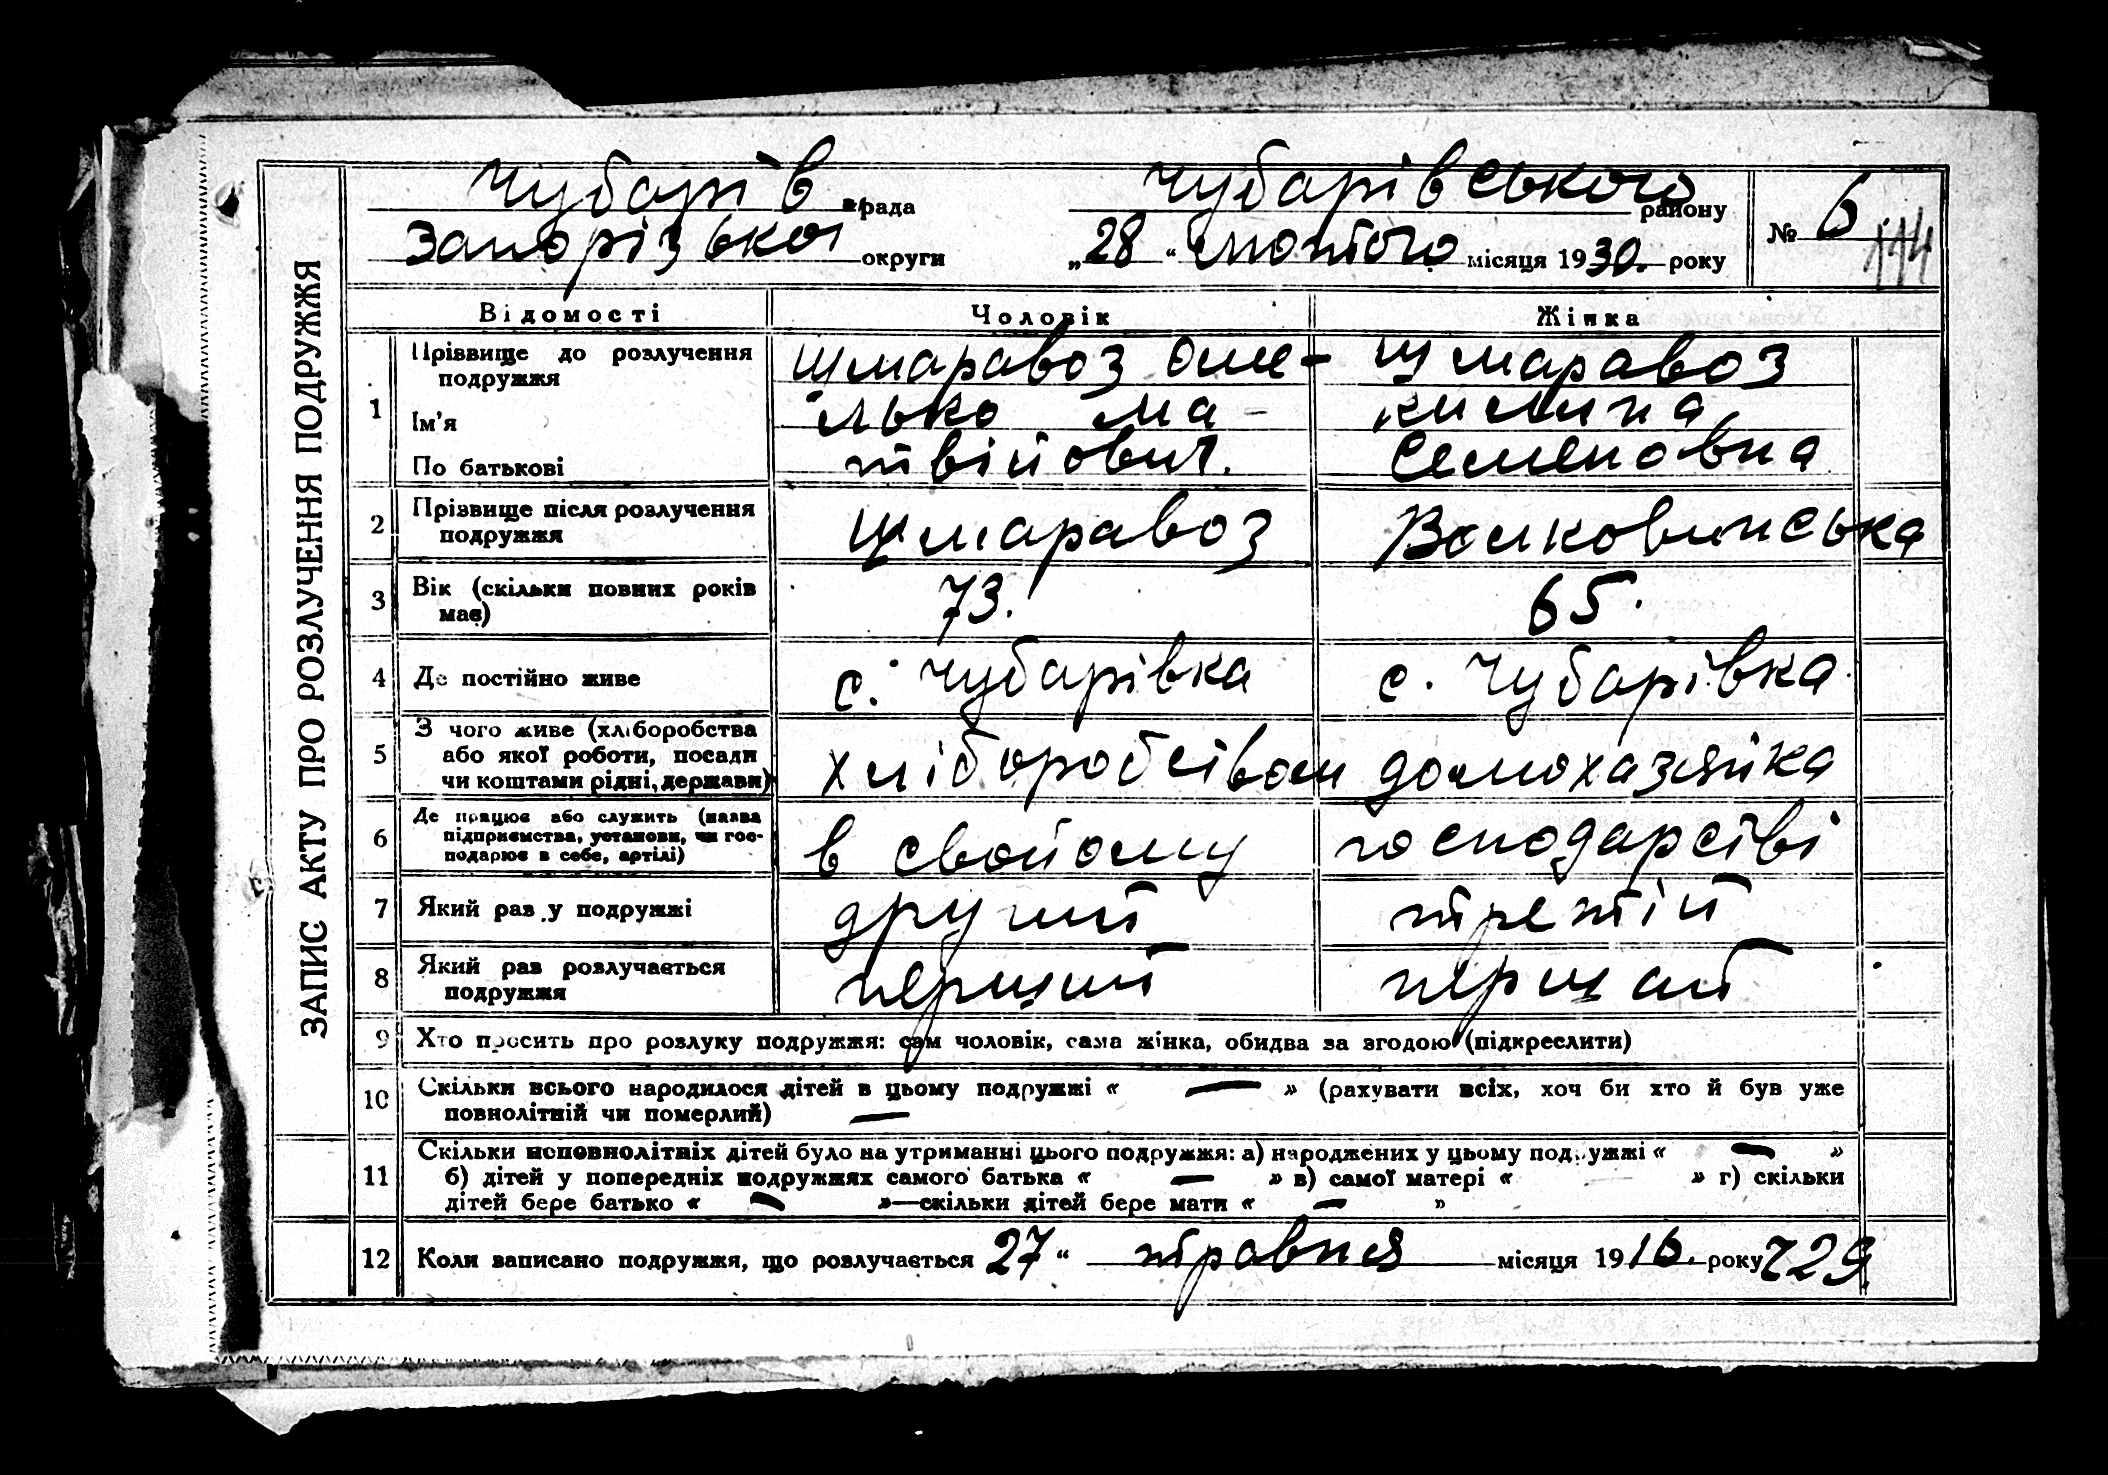 ЗАПИС АКТУ ПРО РОЗЛУЧЕННЯ ПОДРУЖЖЯ
Чубарів рада Чубарівського району № 6
Запорізької округи „28 “ лютого місяця 1930. року 114
Відомості Чоловік Жінка
1 Прізвище до розлучення Шмаравоз Оме- Шмаравоз
подружжя
Ім'я лько Ма- Килина
По батькові твійович. Семеновна
2 Прізвище після розлучення Шмаравоз
подружжя
3 Вік (скільки повних років 73. 65.
має)
4 Де постійно живе с. Чубарівка с. Чубарівка
5 З чого живе (хліборобства
або якої роботи, посади хліборобством домохазяйка
чи коштами рідні, держави)
6 Де працює або служить (назва
підприємства, установи, чи гос- в свойому господарстві
подарює в себе, артілі)
7 Який раз у подружжі другий третій
8 Який раз розлучається перший перший
подружжя
9 Хто просить про розлуку подружжя: сам чоловік, сама жінка, обидва за згодою (підкреслити)
10 Скільки всього народилося дітей в цьому подружжі « — » (рахувати всіх, хоч би хто й був уже
повнолітній чи померлий) —
11 Скільки неповнолітніх дітей було на утриманні цього подружжя: а) народжених у цьому подружжі « — »
б) дітей у попередніх подружжях самого батька « — » в) самої матері « » г) скільки
дітей бере батько « — »—скільки дітей бере мати « — »
12 Коли записано подружжя, що розлучається 27 “ травня місяця 1916. року 229.